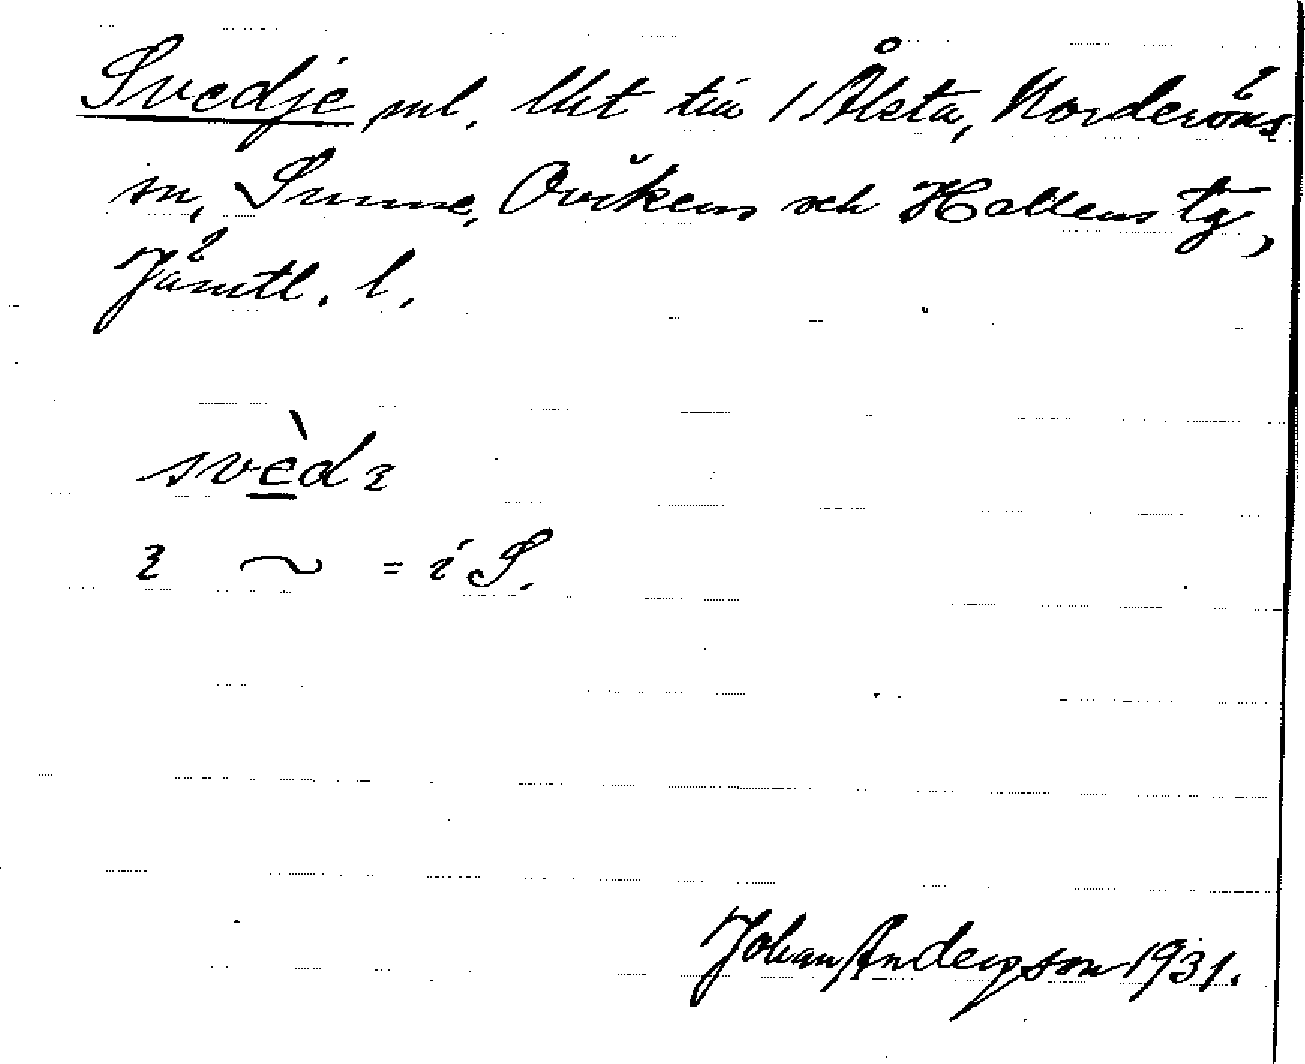 Svedje snl. lht till 1 Ålsta, Norderöns
sn, Sunne, Ovikens och Hallens tg,
Jämtl. l.
svèdɜ
ɜ ~ = i S.
Johan Anderson 1931.